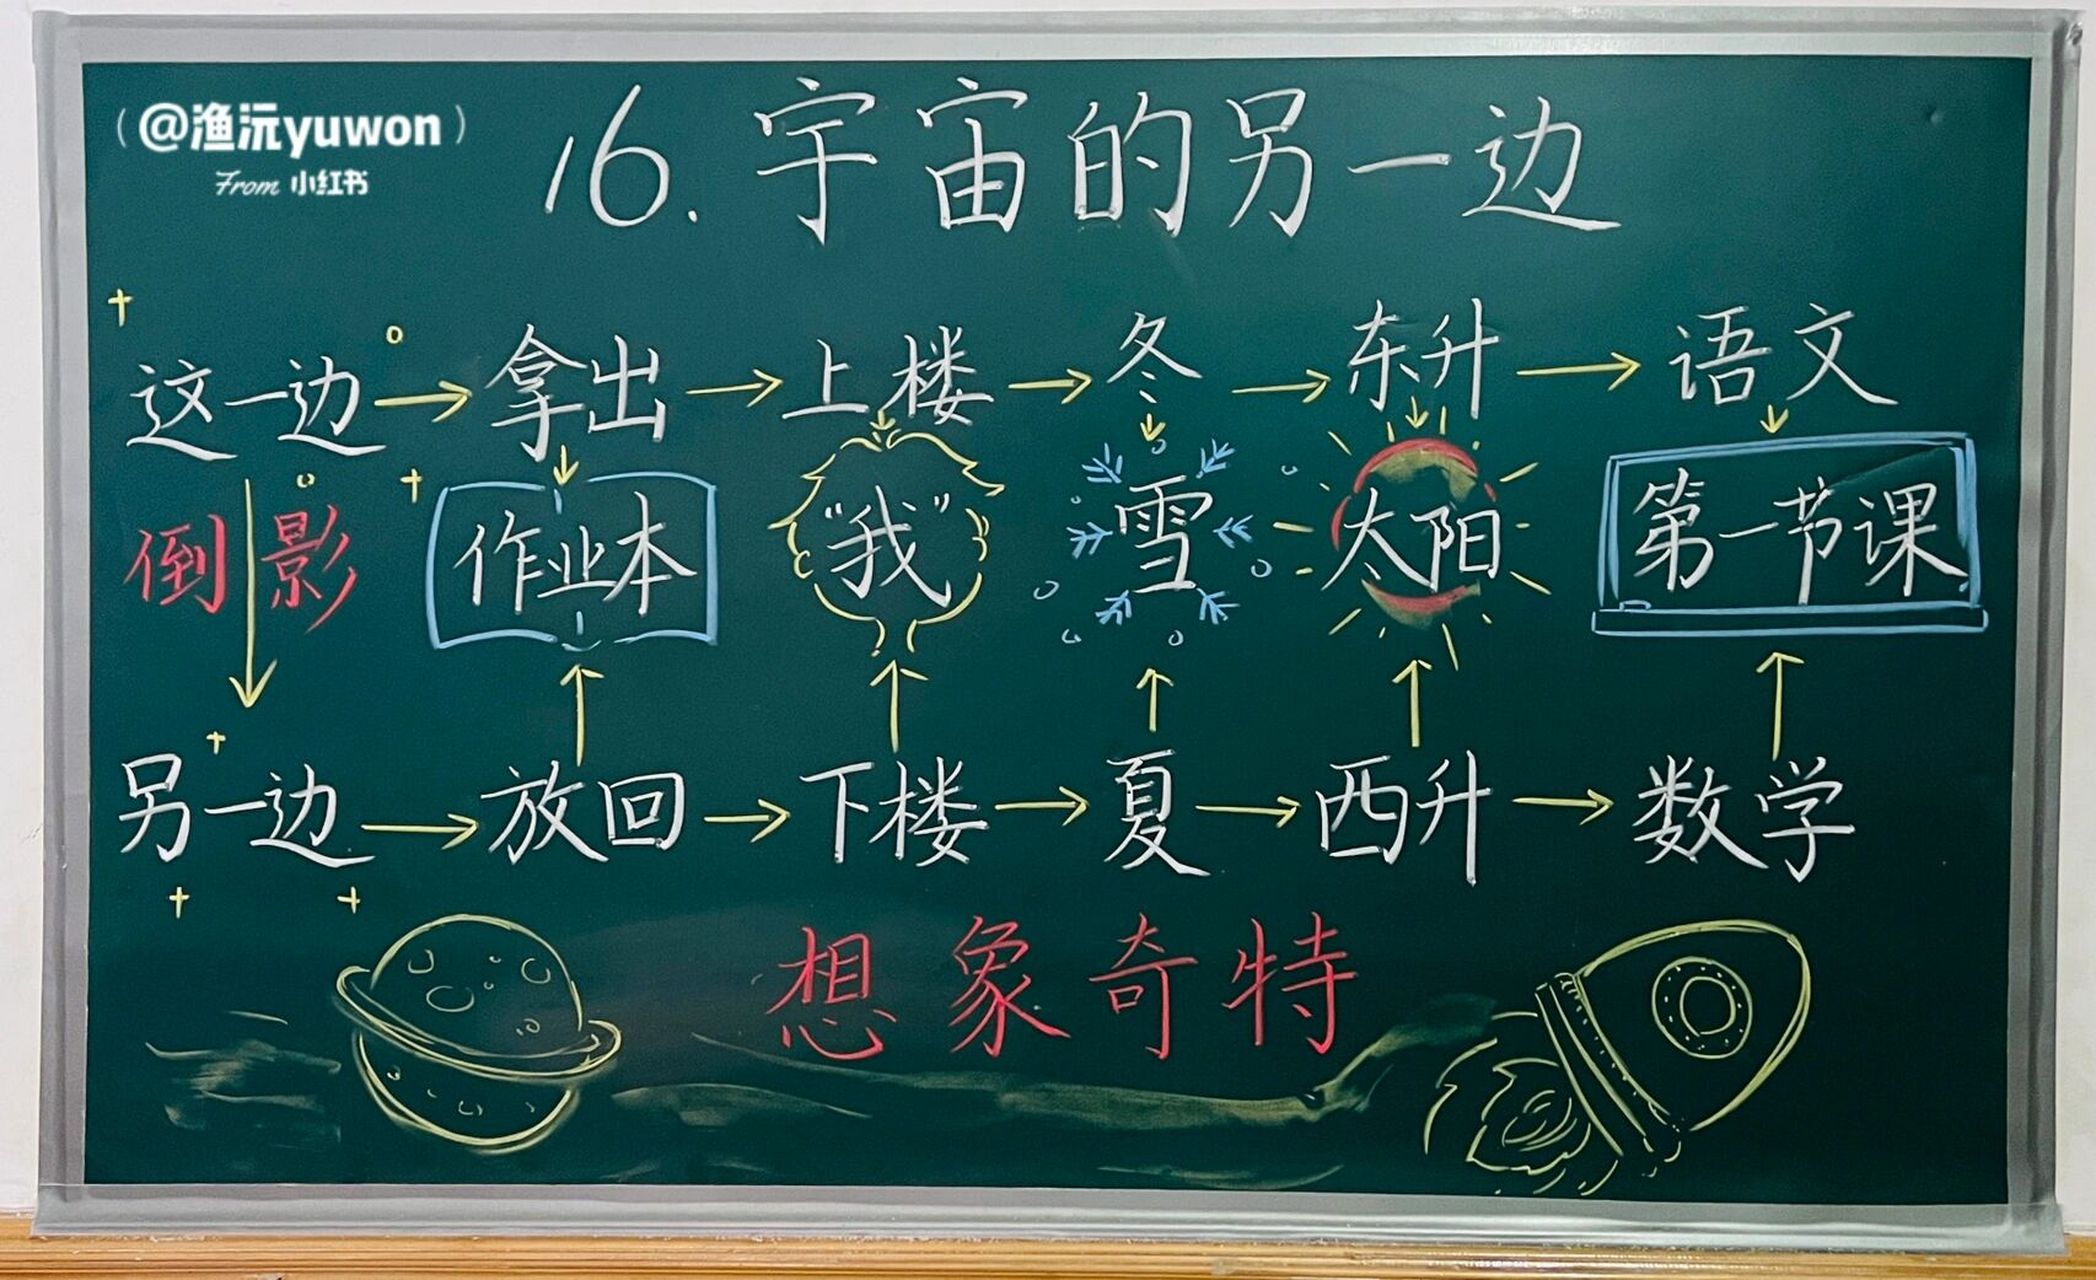 @渔沅yuwon
From 小红书
16.宇宙的另一边
这一边 → 拿出 → 上楼 → 冬 → 东升 → 语文
倒影 作业本 “我” 雪 太阳 第一节课
另一边 → 放回 → 下楼 → 夏 → 西升 → 数学
想象奇特